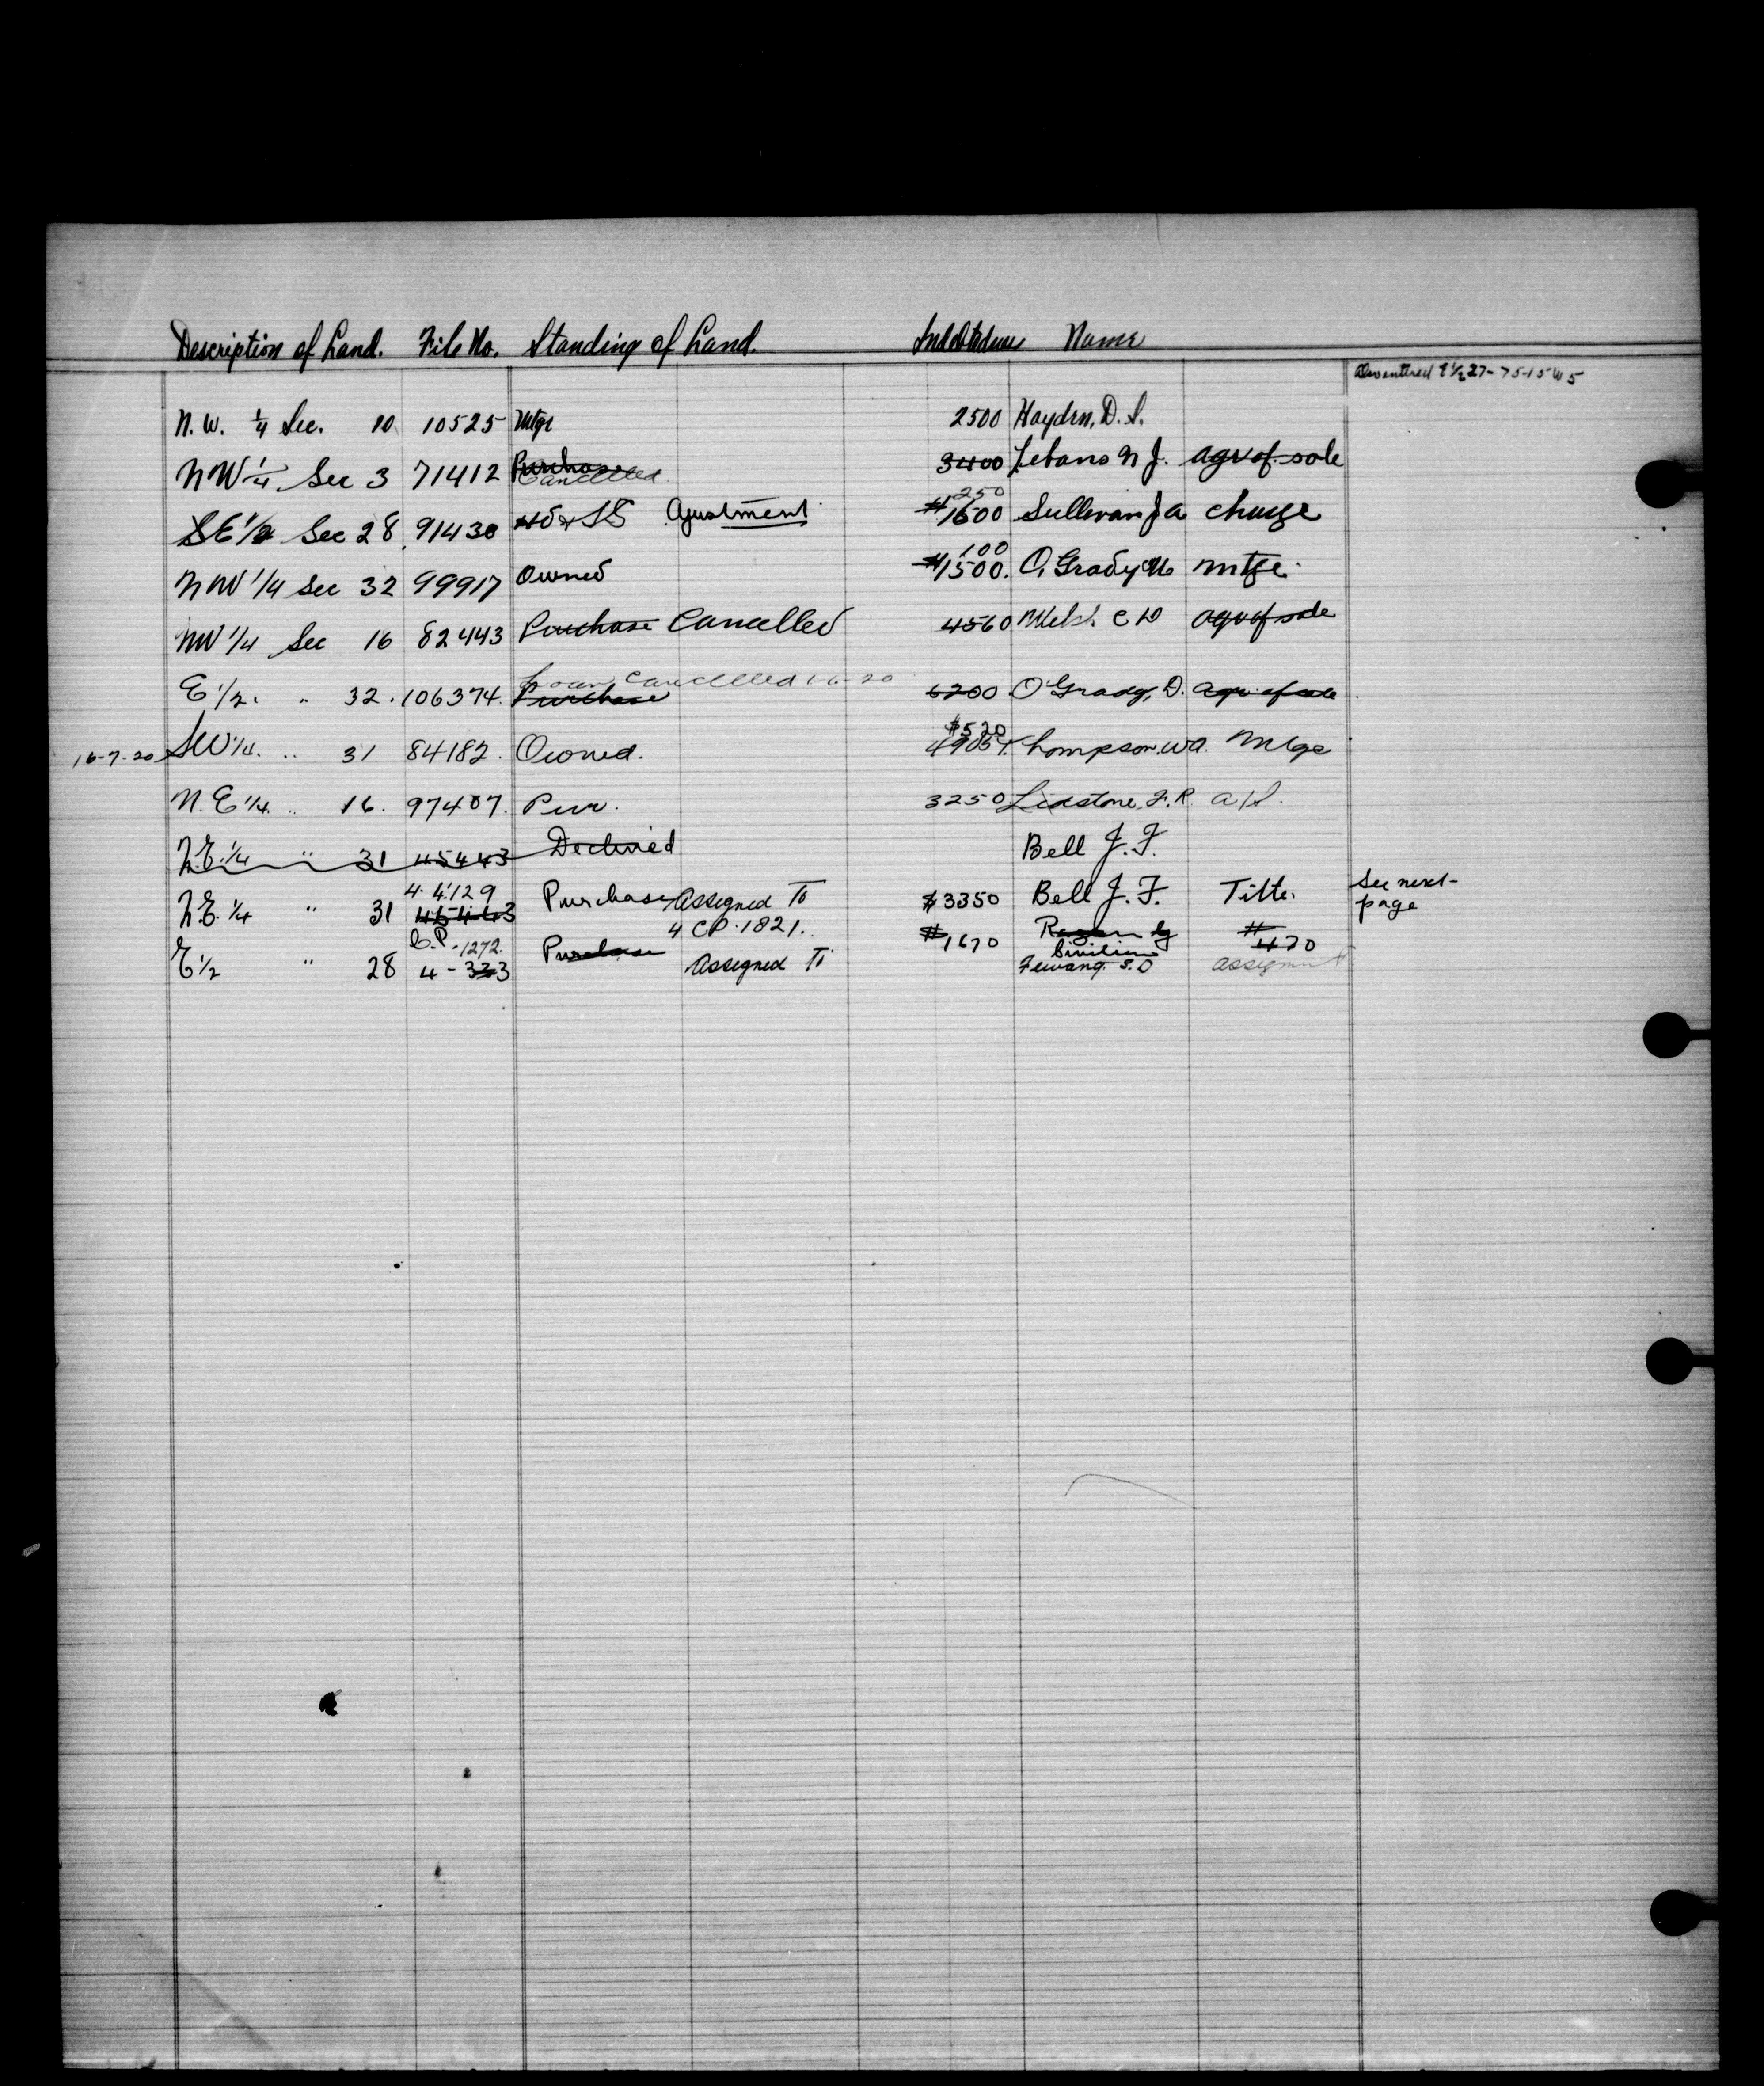 Description of Land. File No. Standing of Land. Name
E 1/2 27-75-15 W 5
N.W. 1/4 Sec. 10 10525 Mtge 2500 Hayden, D. S.
NW 1/4 Sec 3 71412 Purchase Cancelled 3400 N J. agr of sale
SE 1/2 Sec 28 91430 SS Ajustment 250 #1600 Sullivan J A charge
NW 1/4 Sec 32 99917 Owned 100 #1500. O'Grady M mtge.
NW 1/4 Sec 16 82443 Purchase Cancelled 4560 Welsh C D agr of sale
Loan Cancelled 1-6-20
E 1/2. " 32. 106374. Purchase 6200 O'Grady, D. agr. of sale
$520
16-7-20 SW 1/4. " 31 84182. Owned. Thompson. W.A. Mtge
N.E 1/4. " 16. 97407. Pur. 3250 Lidstone, F. R. A/S.
N.E. 1/4 " 31 45443 Declined Bell J. F.
4. 4129
N.E. 1/4 " 31 45443 Purchase Assigned To $3350 Bell J. F. Title. See next page
C.P. 1272. 4 CP. 1821.
E 1/2 " 28 4-333 Purchase Assigned To #1670 S.D #470 assignment